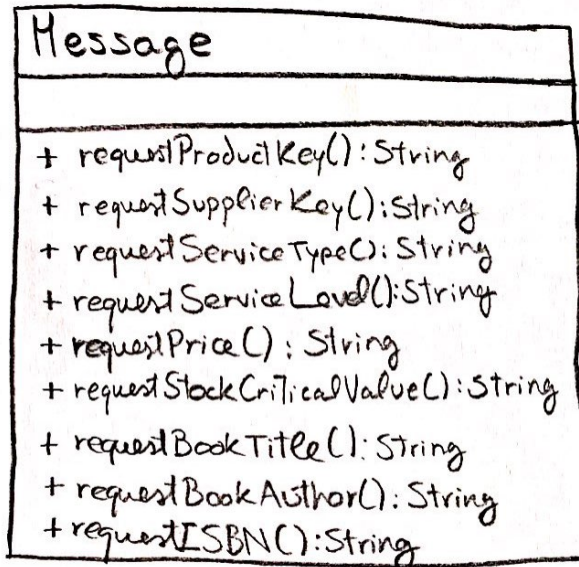 Message
+ requestProductKey(): String
+ requestSupplierKey(): String
+ requestServiceType(): String
+ requestServiceLevel(): String
+ requestPrice(): String
+ requestStockCriticalValue(): String
+ requestBookTitle(): String
+ requestBookAuthor(): String
+ requestISBN(): String